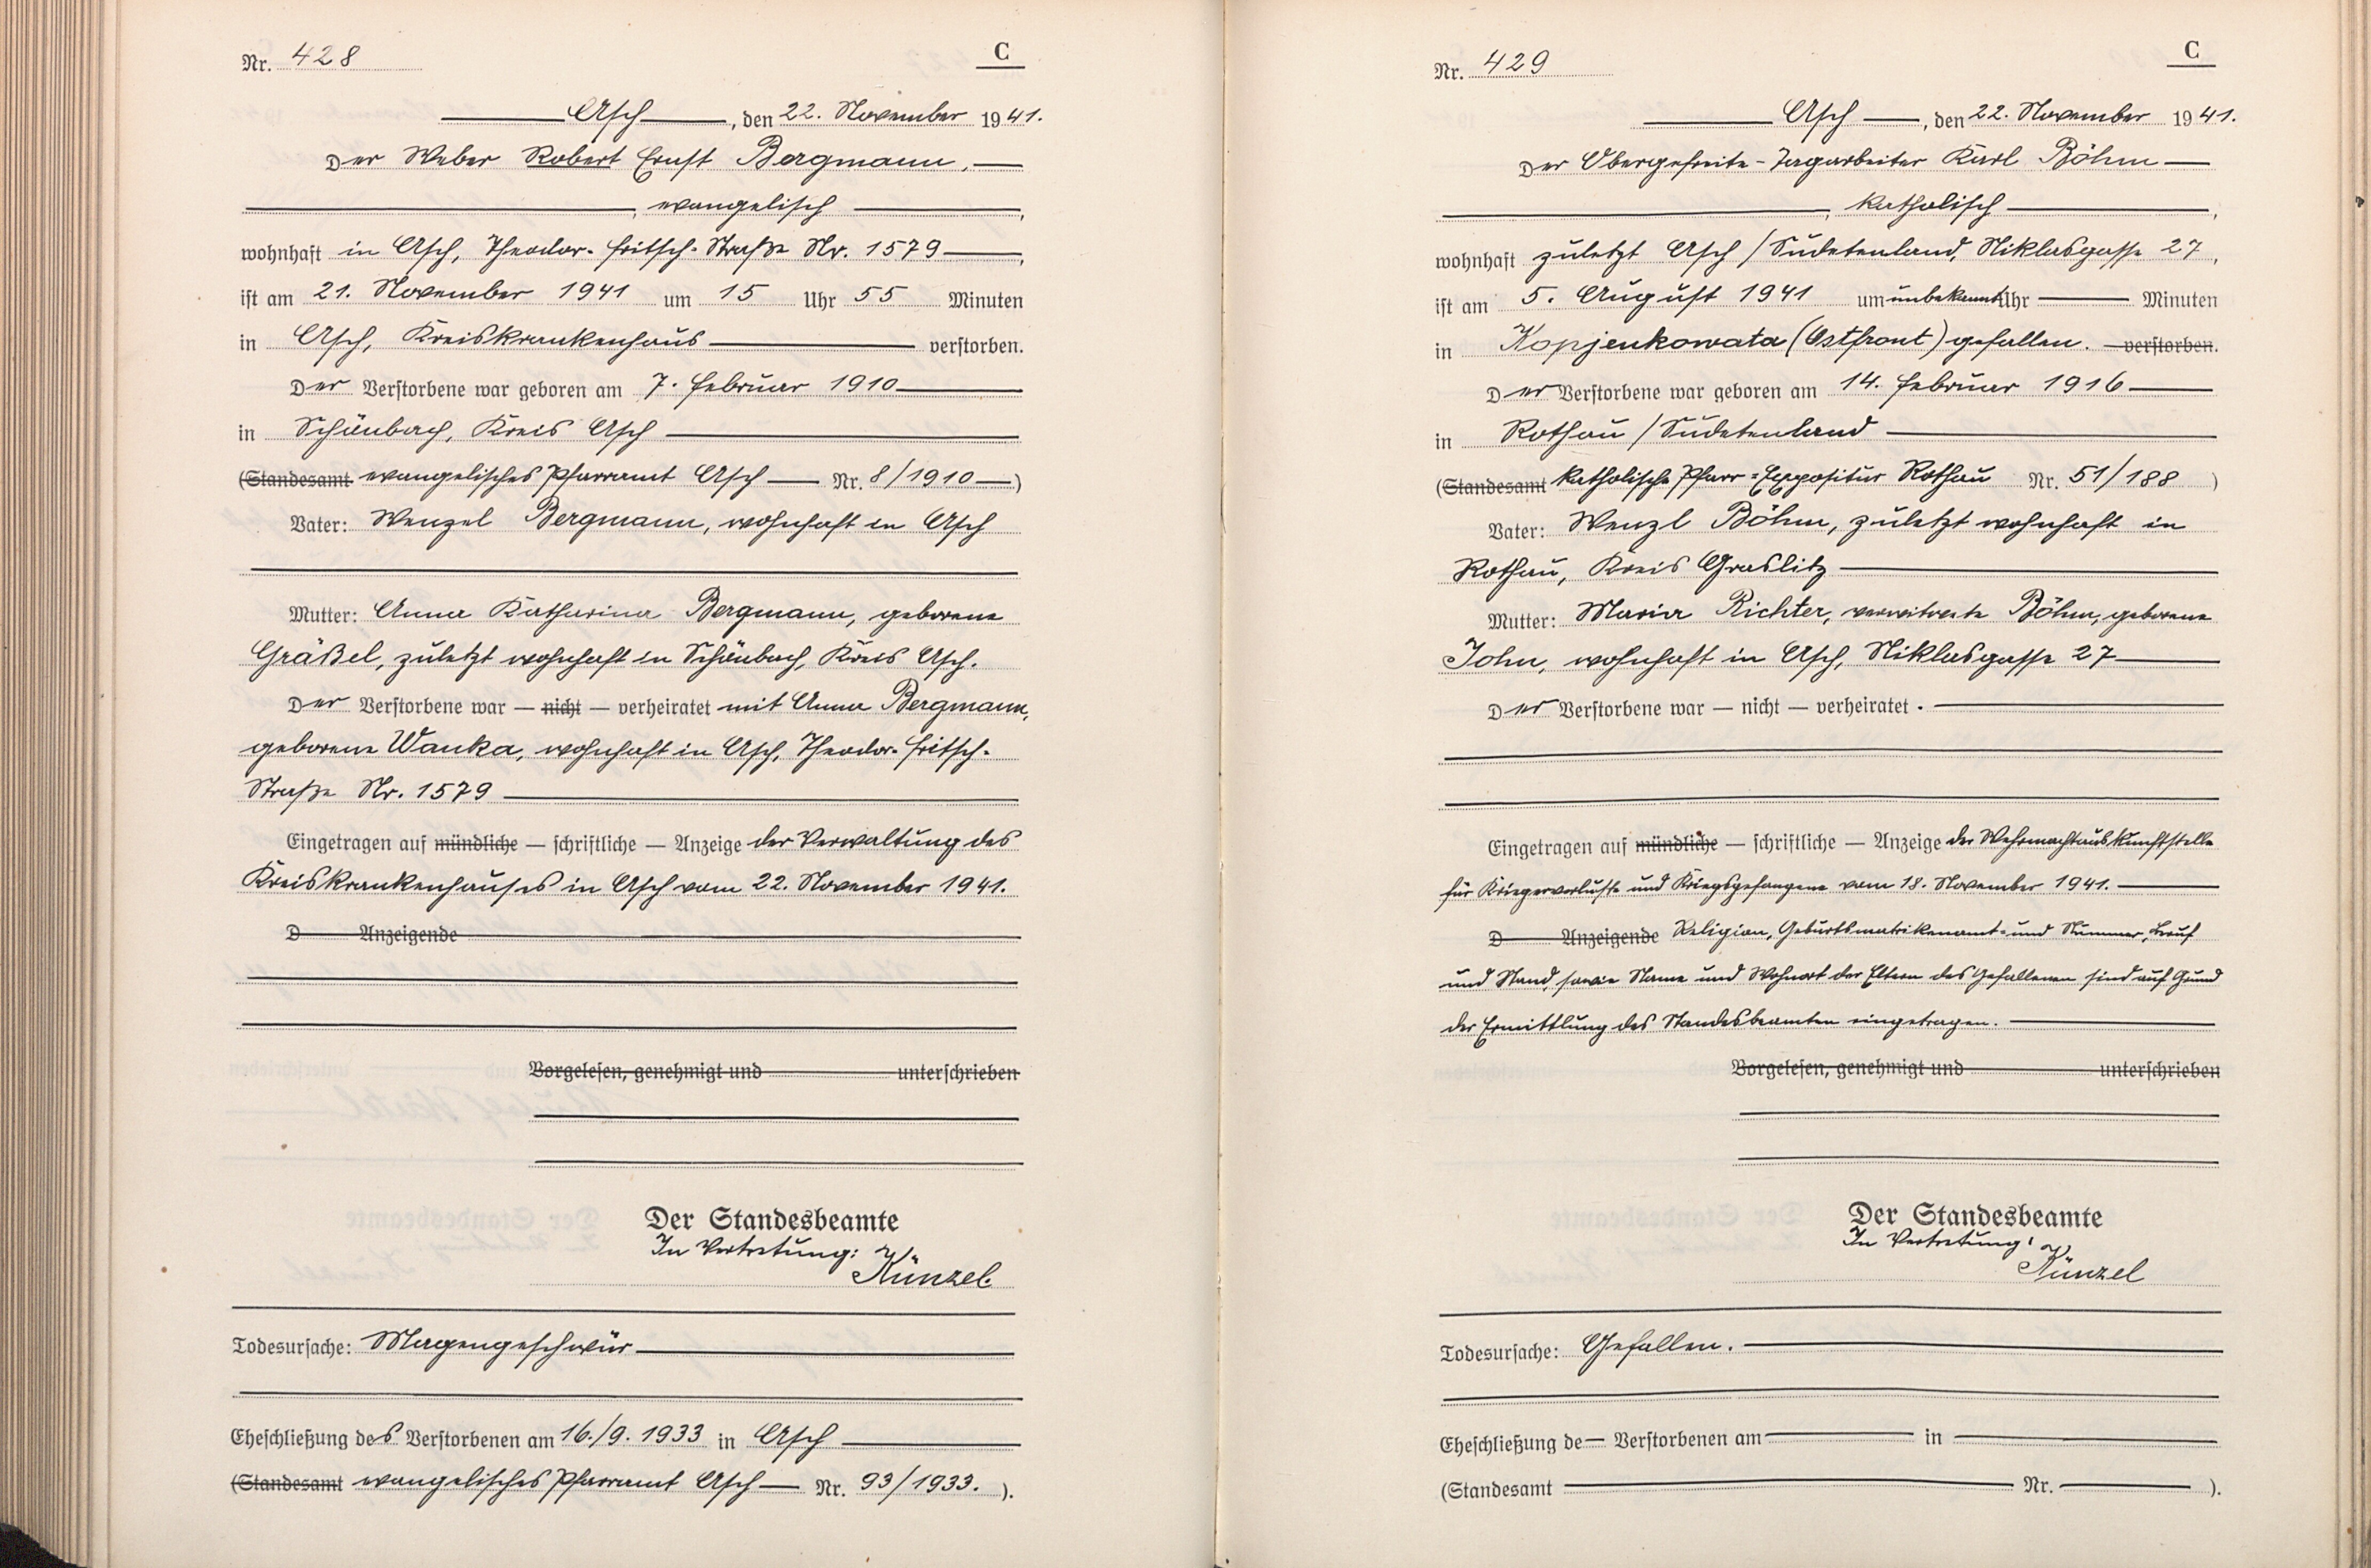 Nr. 428
C
Asch, den 22. November 1941.
Der Weber Robert Ernst Bergmann,
, evangelisch ,
wohnhaft in Asch, Theodor-Fritsch-Straße Nr. 1579,
ist am 21. November 1941 um 15 Uhr 55 Minuten
in Asch, Kreiskrankenhaus verstorben.
Der Verstorbene war geboren am 7. Februar 1910
in Schönbach, Kreis Asch
(Standesamt evangelisches Pfarramt Asch Nr. 8/1910)
Vater: Wenzel Bergmann, wohnhaft in Asch
Mutter: Anna Katharina Bergmann, geborene
Gräßel, zuletzt wohnhaft in Schönbach, Kreis Asch.
Der Verstorbene war — nicht — verheiratet mit Anna Bergmann,
geborene Wanka, wohnhaft in Asch, Theodor-Fritsch-
Straße Nr. 1579
Eingetragen auf mündliche — schriftliche — Anzeige der Verwaltung des
Kreiskrankenhauses in Asch vom 22. November 1941.
D Anzeigende
Vorgelesen, genehmigt und unterschrieben
Der Standesbeamte
In Vertretung:
Künzel.
Todesursache: Magengeschwür
Eheschließung des Verstorbenen am 16./9. 1933 in Asch
(Standesamt evangelisches Pfarramt Asch Nr. 93/1933. ).
Nr. 429
C
Asch, den 22. November 1941.
Der Obergefreite - Tagarbeiter Karl Böhm
, katholisch ,
wohnhaft zuletzt Asch / Sudetenland, Niklasgasse 27,
ist am 5. August 1941 um unbekannt Uhr Minuten
in Kopjenkowata (Ostfront) gefallen. verstorben.
Der Verstorbene war geboren am 14. Februar 1916
in Rothau / Sudetenland
(Standesamt katholische Pfarr-Expositur Rothau Nr. 51/188 )
Vater: Wenzl Böhm, zuletzt wohnhaft in
Rothau, Kreis Graslitz
Mutter: Maria Richter, verwitwete Böhm, geborene
John, wohnhaft in Asch, Niklasgasse 27
Der Verstorbene war — nicht — verheiratet.
Eingetragen auf mündliche — schriftliche — Anzeige der Wehrmachtauskunftstelle
für Kriegerverluste und Kriegsgefangene vom 18. November 1941.
D Anzeigende Religion, Geburtsmatrikenamt- und Nummer, Beruf
und Stand, sowie Name und Wohnort der Eltern des Gefallenen sind auf Grund
der Ermittlung des Standesbeamten eingetragen.
Vorgelesen, genehmigt und unterschrieben
Der Standesbeamte
In Vertretung:
Künzel
Todesursache: Gefallen.
Eheschließung de Verstorbenen am in
(Standesamt Nr. ).